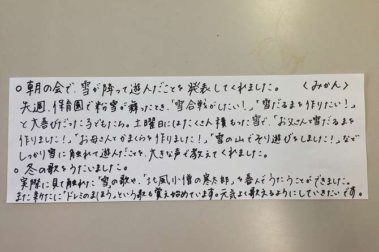 ○朝の会で、雪が降って遊んだことを発表してくれました。〈みかん〉
先週、保育園で粉雪が舞ったとき、"雪合戦がしたい!""雪だるまを作りたい!"
と大喜びだった子どもたち。土曜日にはたくさん積もった雪で、「お父さんと雪だるまを
作りました!」「お母さんとかまくらを作りました!」「雪の山でそり遊びをしました!」など
しっかり雪に触れて遊んだことを、大きな声で教えてくれました。
○冬の歌をうたいました。
実際に見て触れた『雪』の歌や、『北風小僧の寒太郎』を喜んでうたうことができました。
また新たに『ドレミのまほう』という歌も覚え始めています。元気よく歌えるようにしていきたいです。